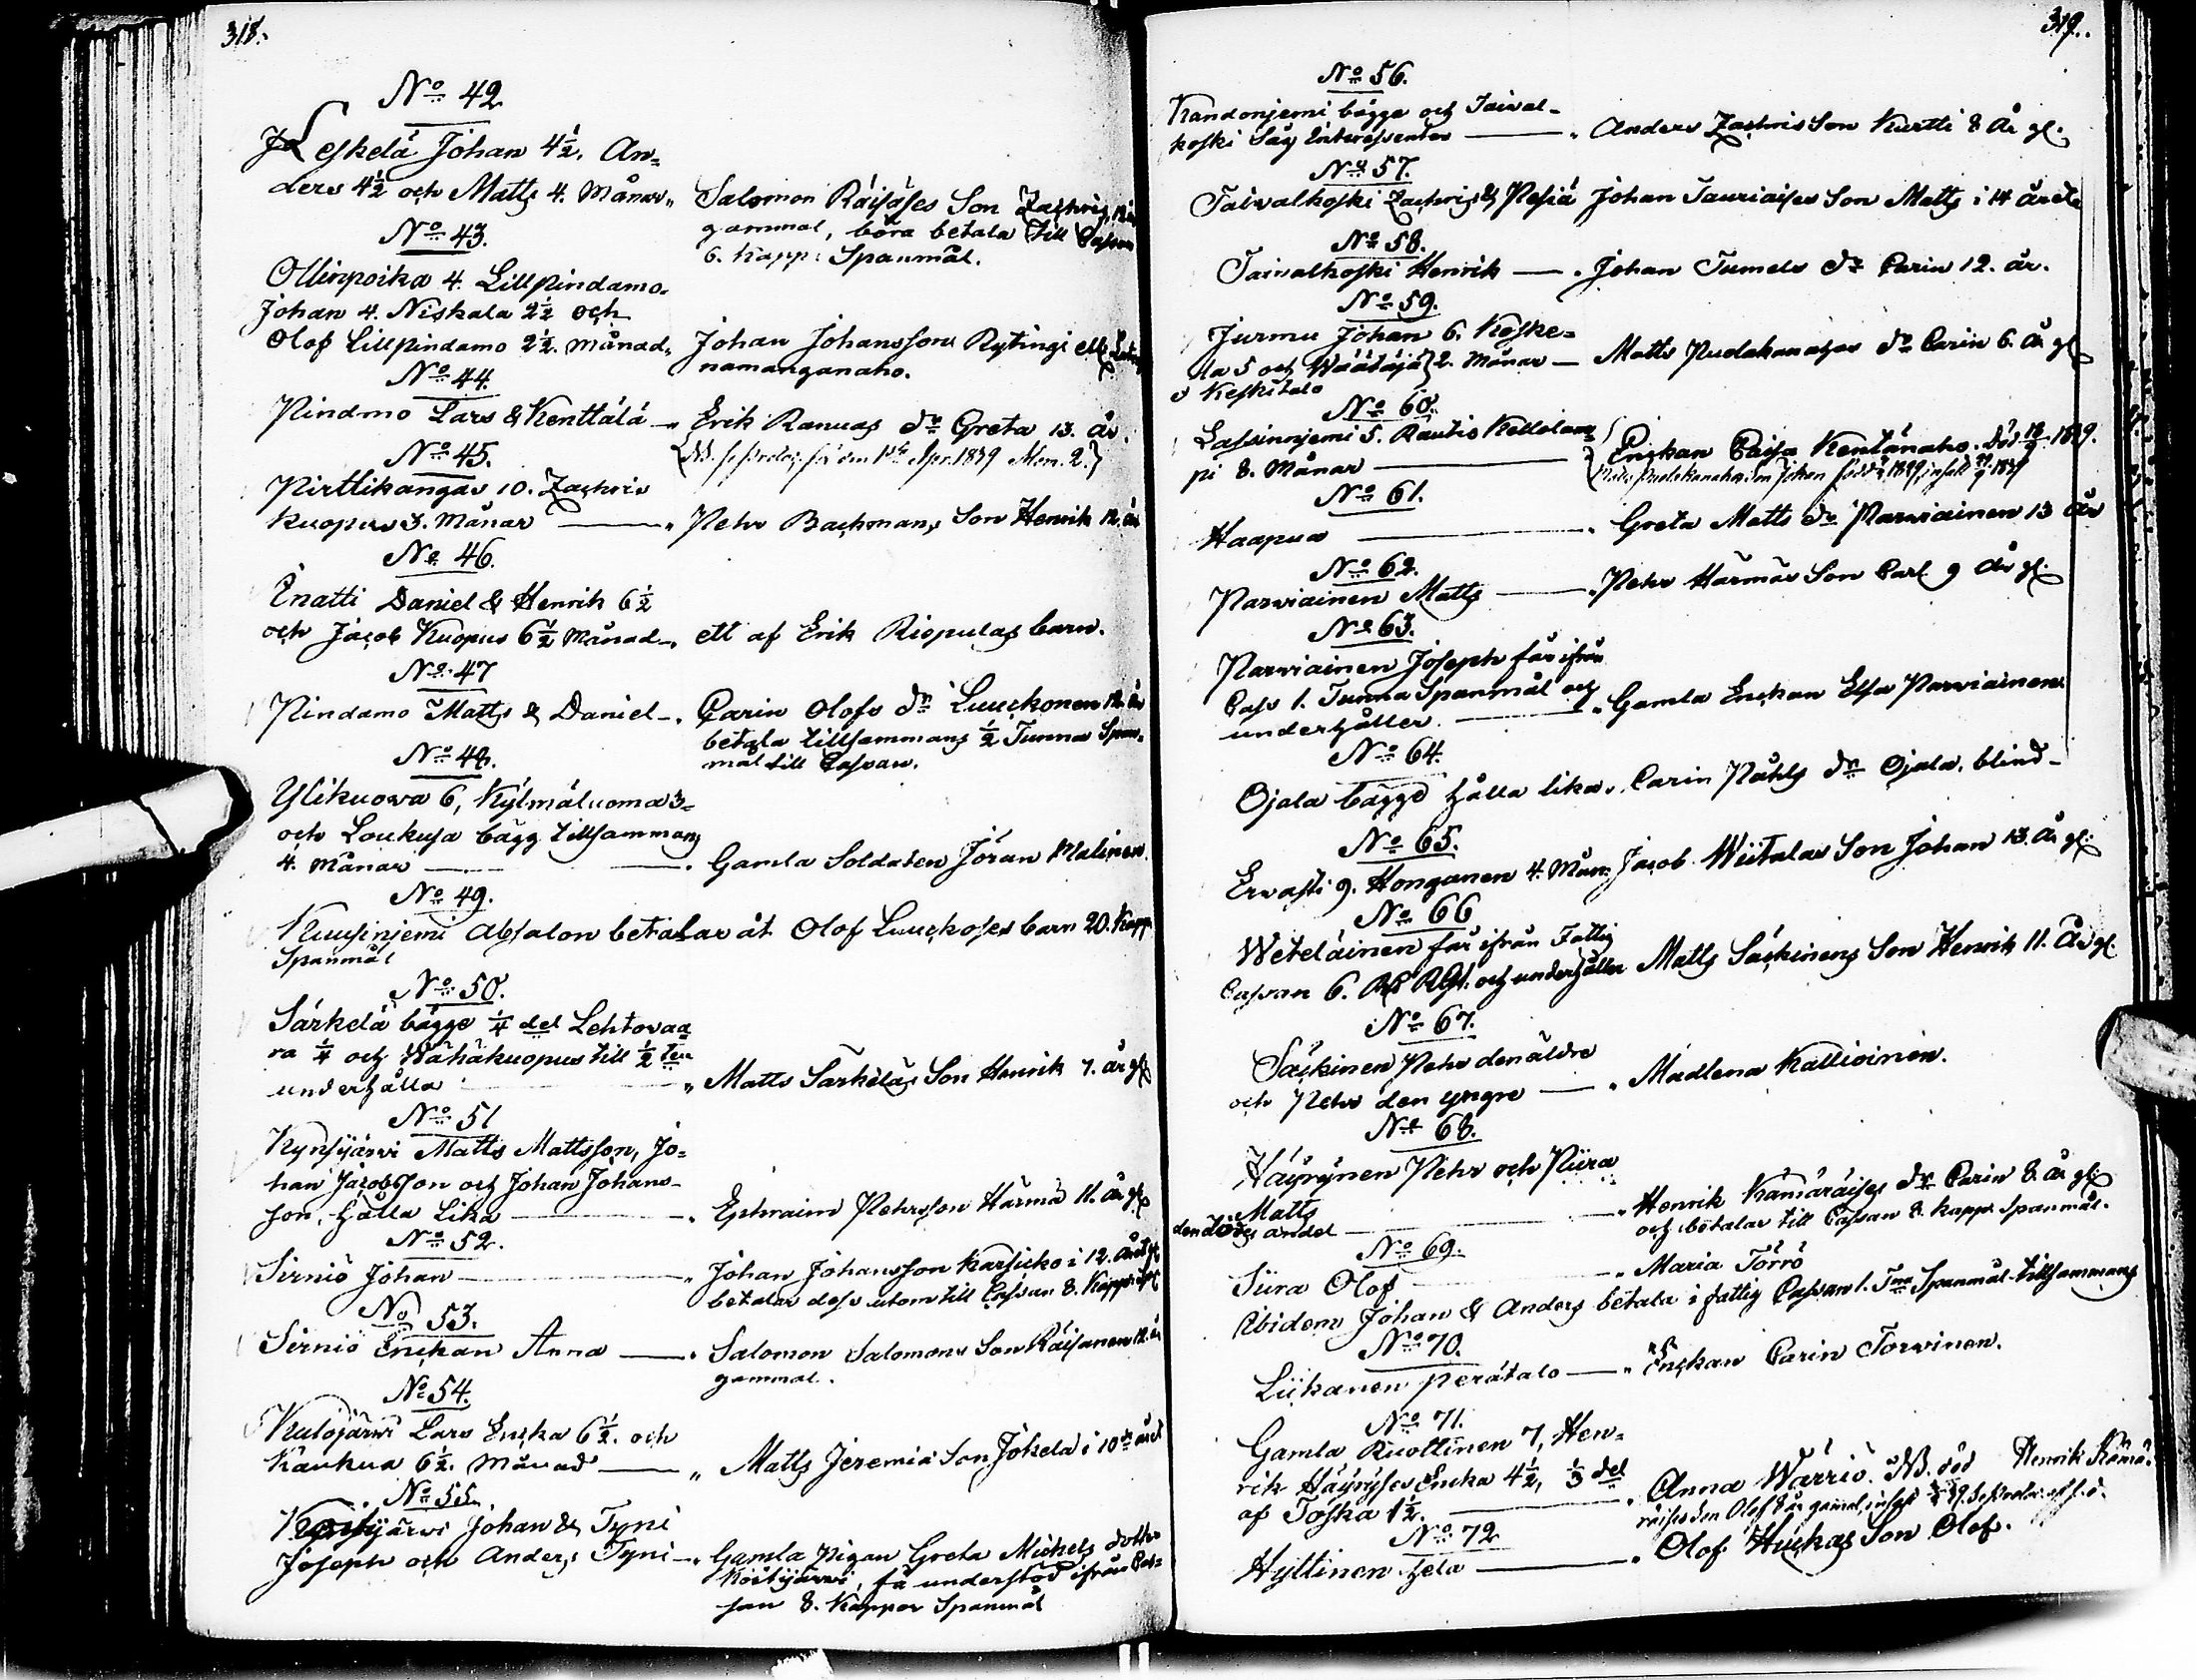 318.
No 42
Leskelä Johan 4½, An-
ders 4½ och Matts 4. Månar
Salomon Räisäses Son Zachris
gammal, böra betala till Cassan
6. kapp: Spanmål.
No 43.
Ollinpoika 4. Lillpindamo
Johan 4. Niskala 2½ och
Olof Lillpindamo 2½. Månad
Johan Johansson Rytingi
namanganaho.
No 44.
Pindmo Lars & Kenttälä
Erik Ranuas dr Greta 13. år.
No 45.
Pirttikangas 10. Zachris
Kuopus 3. Månar
Pehr Bachmans Son Henrik 12. år
No 46.
Enatti Daniel & Henrik 6½
och Jacob Kuopus 6½ Månad
ett af Erik Riepulas barn.
No 47
Pindamo Matts & Daniel
Carin Olofs dr Luuckonen 12. år
betala tillsammans ½ Tunna Span-
mål till Cassan.
No 48.
Ylikuowa 6, Kylmäluoma 3
och Loukusa bägg tillsammans
4. Månar
Gamla Soldaten Jöran Malinen
No 49.
Kuusinjemi Absalon betalar åt Olof Luuckoses barn 20. Kapp
Spanmål
No 50.
Särkelä bägge ¼ del Lehtovaa
ra ¼ och Wähäkuopus till ½ ten
underhålla
Matts Särkeläs Son Henrik 7. år gl
No 51
Kynsijärwi Matts Mattsson, Jo-
han Jacobsson och Johan Johans-
son, hålla Lika
Ephraim Pehrsson Härmä 11. år gl
No 52.
Sirniö Johan
Johan Johansson Karsicko i 12. året
betalar dess utom till Cassan 8. Kapp
No 53.
Sirniö Enckan Anna
Salomon Salomons Son Räisänen 12. år
gammal.
No 54.
Kulojärwi Lars Encka 6½. och
Kaukua 6½. Månad
Matts Jeremiæ Son Jokela i 10de året
No 55.
Kostijärwi Johan & Tyni
Joseph och Anders Tyni
Gamla Pigan Greta Michels dotter
Kostijärwi, få understöd ifrån Cas-
san 8. Kappar Spanmål
319.
No 56.
Kandonjemi bägge och Taival-
koski Såg Interessenter
Anders Zachris Son Kurtti 8 År gl.
No 57.
Taivalkoski Zachris & Pesiä
Johan Tauriaises Son Matts i 14 året
No 58.
Taivalkoski Henrik
Johan Tumels dr Carin 12. år.
No 59.
Jurmu Johan 6. Keske-
la 5 och Määtäjä 2. Månar
o Keskitalo
Matts Pudakanahos dr Carin 6. År gl
No 60.
Lassinnjemi 5. Rautio Kellolam-
pi 8. Månar
Enckan Caisa Kentänaho. död 1839.
No 61.
Haapua
Greta Matts dr Parviainen 13 år
No 62.
Parviainen Matts
Pehr Härmäs Son Carl 9 år gl.
No 63.
Parviainen Joseph får ifrån
Cass 1. Tunna Spanmål och
underhåller
Gamla Enckan Elsa Parviainen
No 64.
Ojala bägge hålla lika
Carin Påhls dr Ojala, blind
No 65.
Ervasti 9. Honganen 4. Mån:
Jacob Wiitalas Son Johan 13. År gl.
No 66
Weteläinen får ifrån Fattig
Cassan 6. Rub Rgs. och underhåller
Matts Säckinens Son Henrik 11. År gl.
No 67.
Säckinen Pehr den äldre
och Pehr den yngre
Madlena Kallioinen.
No 68.
Häyrynen Pehr och Piira
Matts
den dödes andel
Henrik Kämäräises dr Carin 8. År gl
och betalar till Cassan 8. kapp. Spanmål.
No 69.
Siira Olof
Maria Törrö
Ibidem Johan & Anders betala i fattig Cassan 1. Tna Spanmål tillsammans
No 70.
Liikanen Perätalo
Enckan Carin Torvinen.
No 71.
Gamla Ruottinen 7, Hen-
rik Häyryses Encka 4½, ⅓ del
af Toska 1½.
Anna Warrio. NB. död Henrik Kämä-
No 72
Hyttinen hela
Olof Huckas Son Olof.